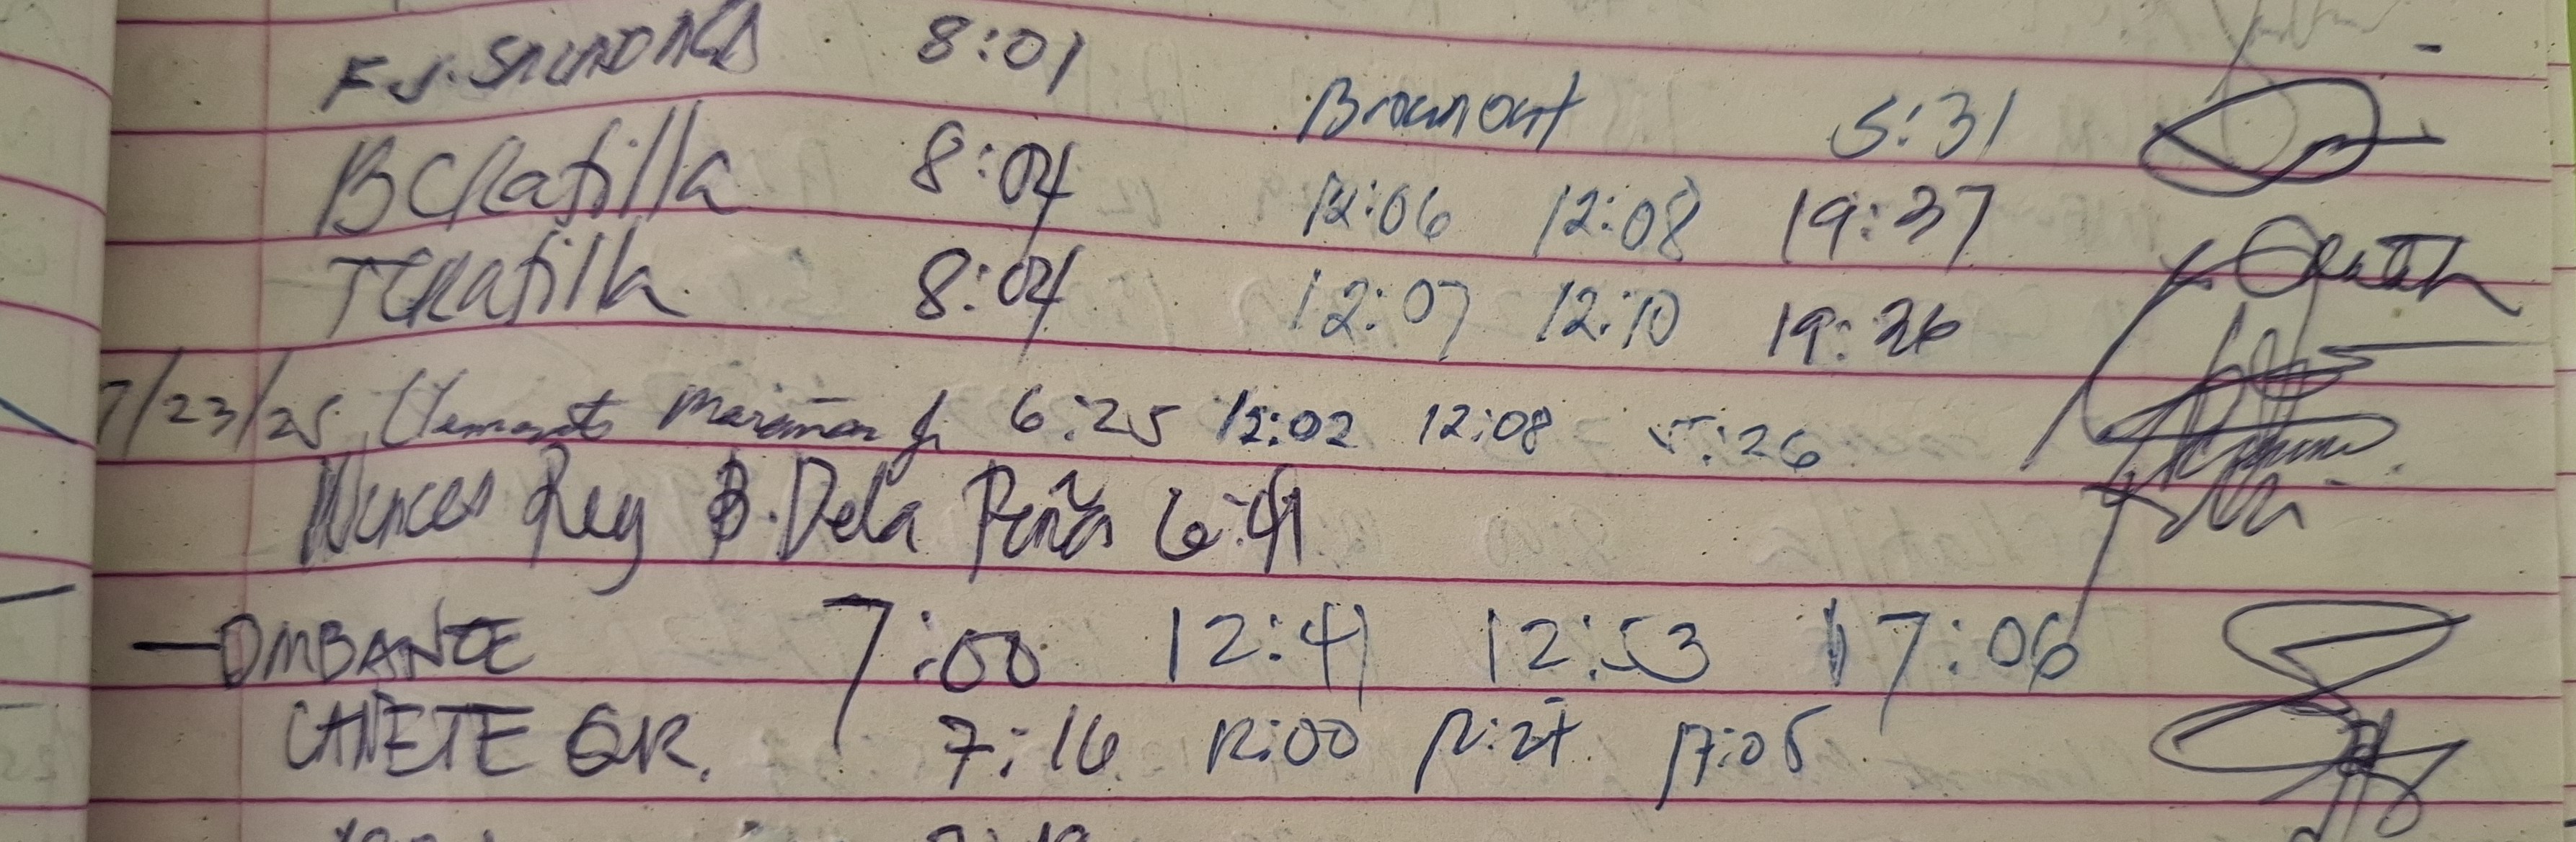 F.J. 8:01 Brownout 5:31
BCRafilla 8:04 12:06 12:08 19:37
TCRafilla 8:04 12:07 12:10 19:36
7/23/25 Clemente Jr. 6:25 12:02 12:08 5:26
Wences Rey B. Dela Peña 6:41
—OMBANOE 7:00 12:41 12:53 17:06
CAÑETE GR. 7:16 12:00 12:27 17:05